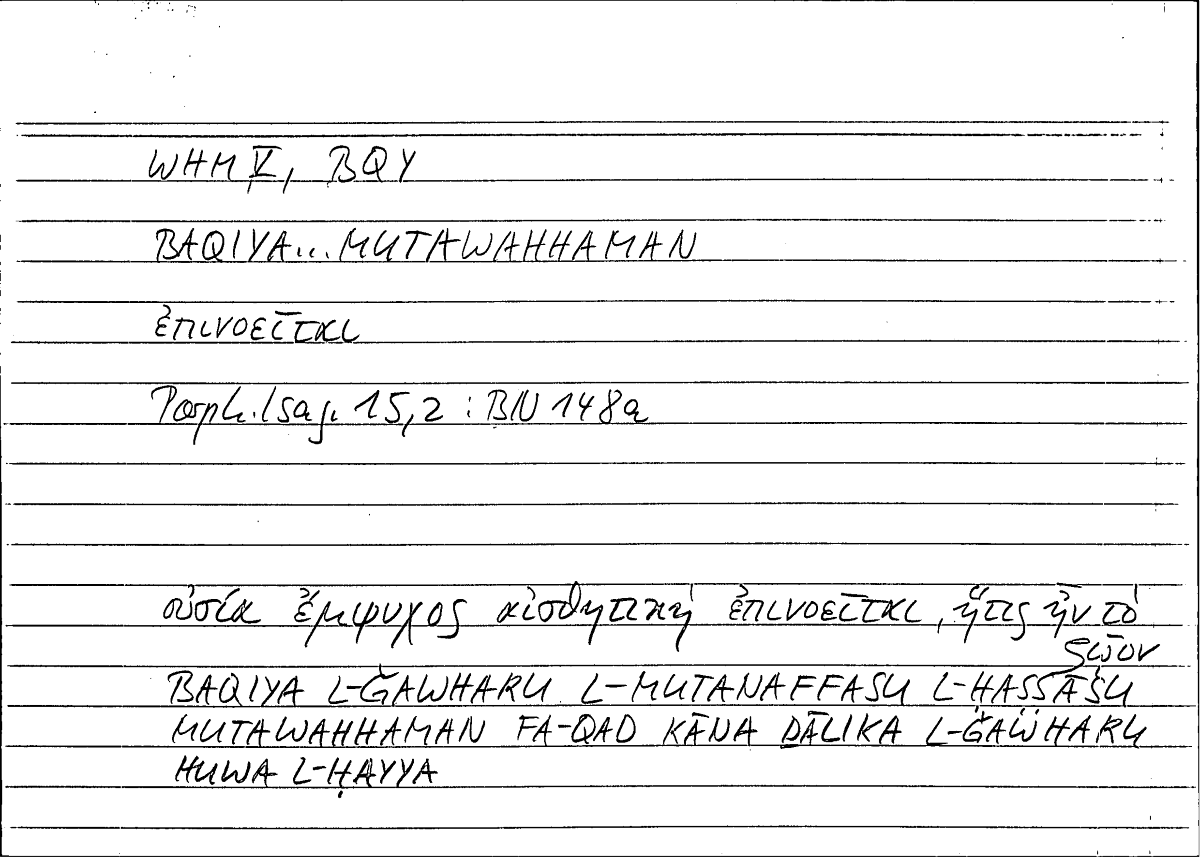 WHM V, BQY
BAQIYA... MUTAWAHHAMAN
ἐπινοεῖται
Porph. Isag. 15,2 : BN 148a
οὐσία ἔμψυχος αἰσθητική ἐπινοεῖται, ἥτις ἦν τὸ
ζῷον
BAQIYA L-ǦAWHARU L-MUTANAFFASU L-ḤASSĀSU
MUTAWAHHAMAN FA-QAD KĀNA ḎĀLIKA L-ǦAWHARU
HUWA L-ḤAYYA